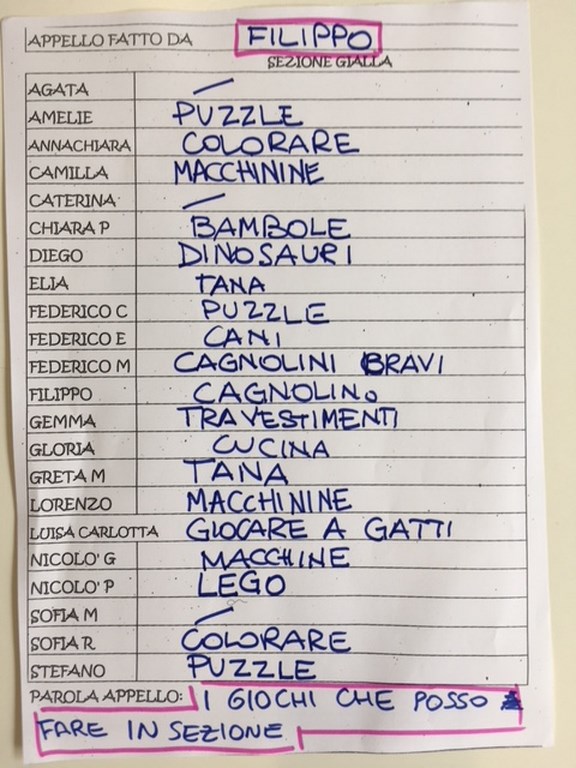 APPELLO FATTO DA FILIPPO
SEZIONE GIALLA
AGATA —
AMELIE PUZZLE
ANNACHIARA COLORARE
CAMILLA MACCHININE
CATERINA —
CHIARA P BAMBOLE
DIEGO DINOSAURI
ELIA TANA
FEDERICO C PUZZLE
FEDERICO E CANI
FEDERICO M CAGNOLINI BRAVI
FILIPPO CAGNOLINO
GEMMA TRAVESTIMENTI
GLORIA CUCINA
GRETA M TANA
LORENZO MACCHININE
LUISA CARLOTTA GIOCARE A GATTI
NICOLO' G MACCHINE
NICOLO' P LEGO
SOFIA M —
SOFIA R COLORARE
STEFANO PUZZLE
PAROLA APPELLO: I GIOCHI CHE POSSO
FARE IN SEZIONE